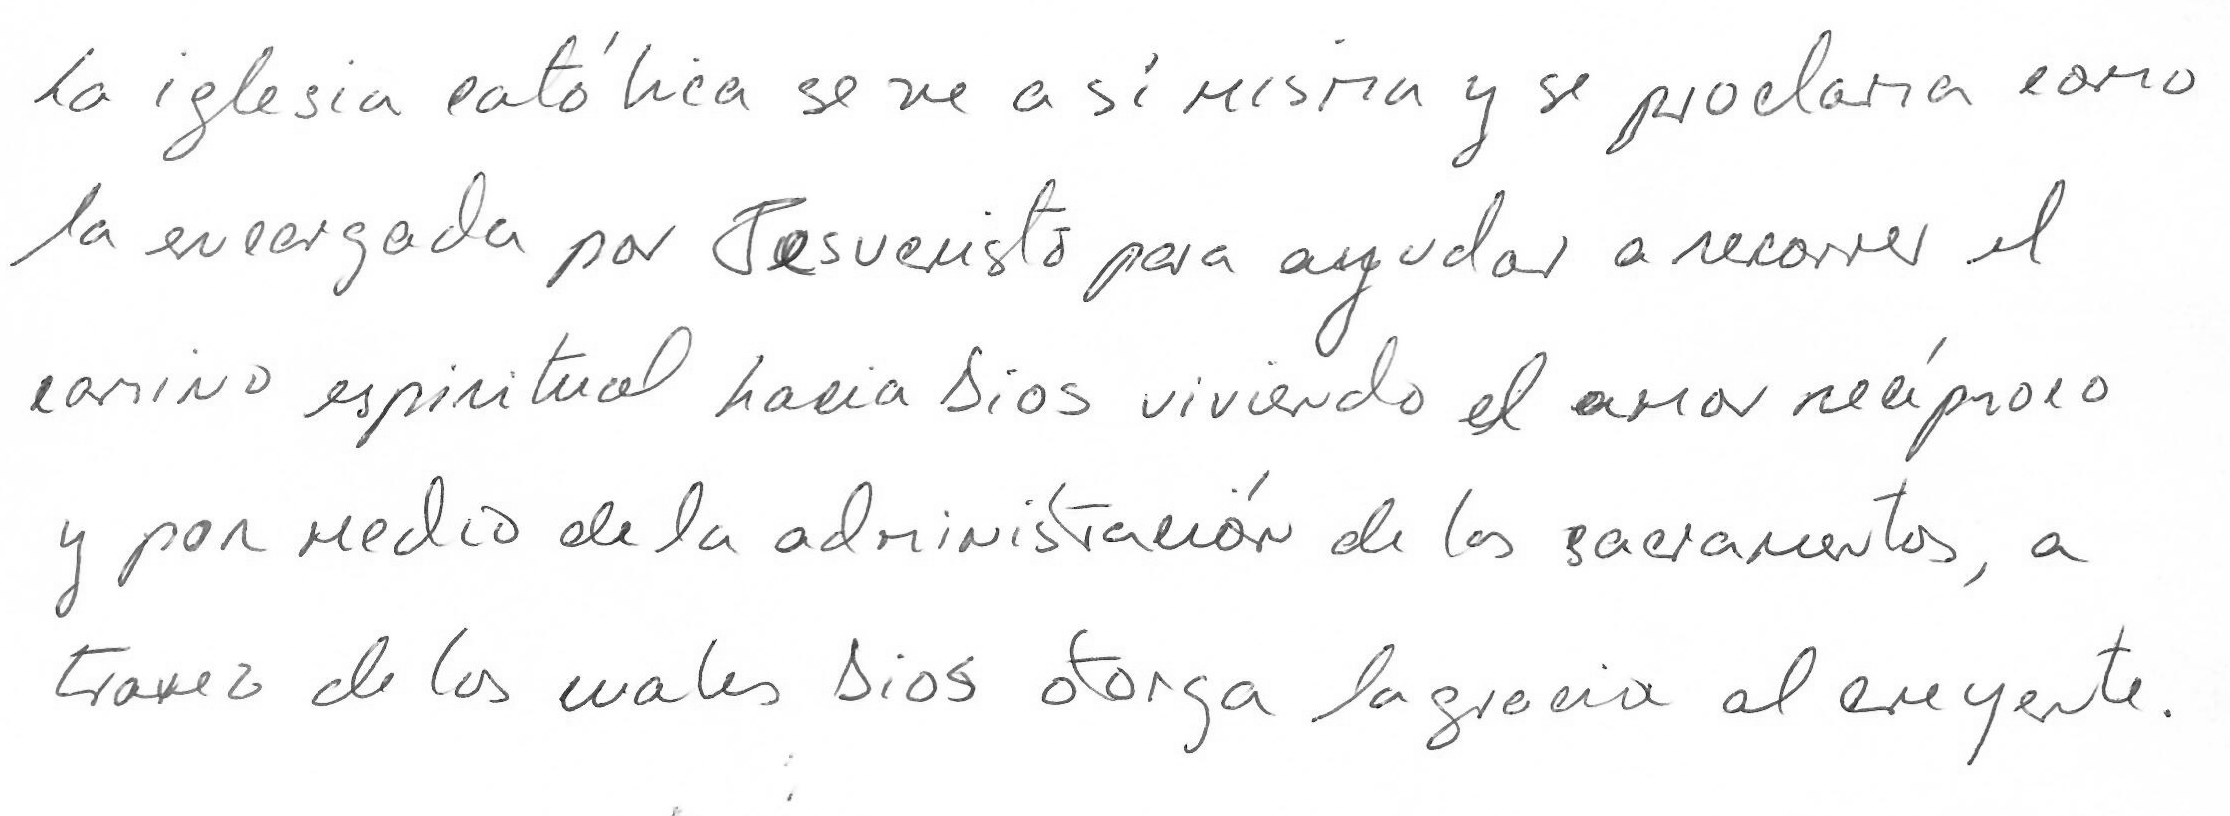 La iglesia católica se ve a sí misma y se proclama como
la encargada por Jesucristo para ayudar a recorrer el
camino espiritual hacia Dios viviendo el amor recíproco
y por medio de la administración de los sacramentos, a
travez de los cuales Dios otorga la gracia al creyente.